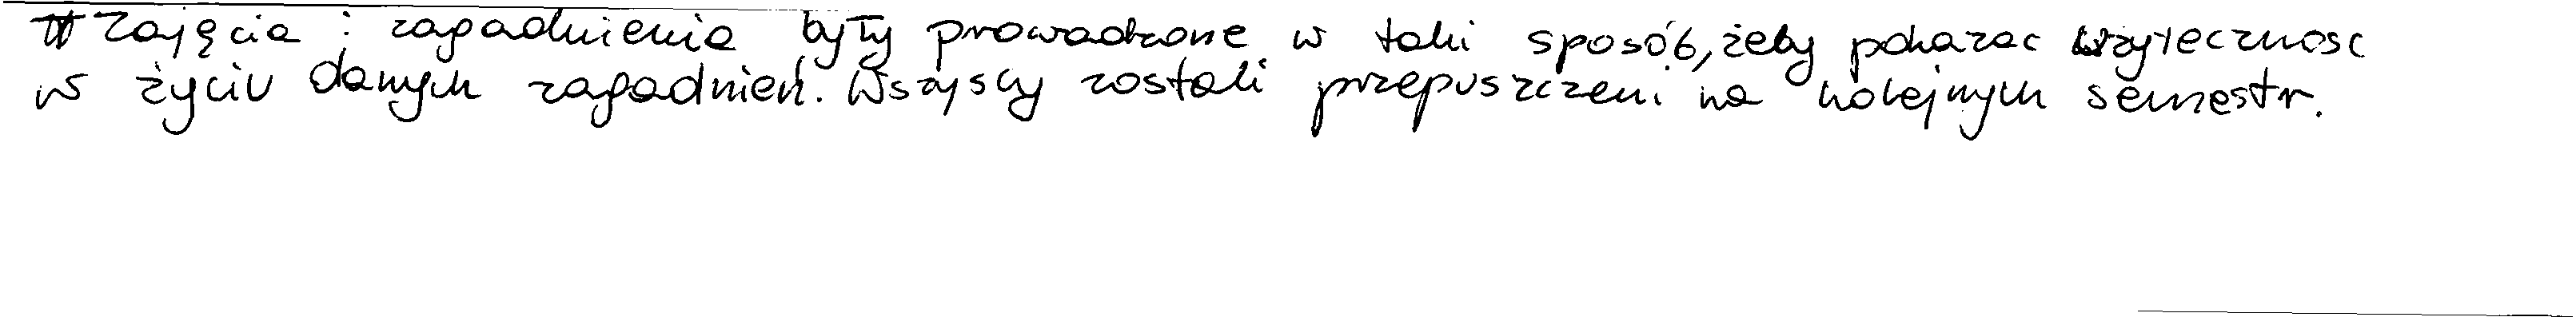 Zajęcia i zagadnienia były prowadzone w taki sposób, żeby pokazac użytecznosc
w życiu danych zagadnień. Wszyscy zostali przepuszczeni na kolejnym semestr.